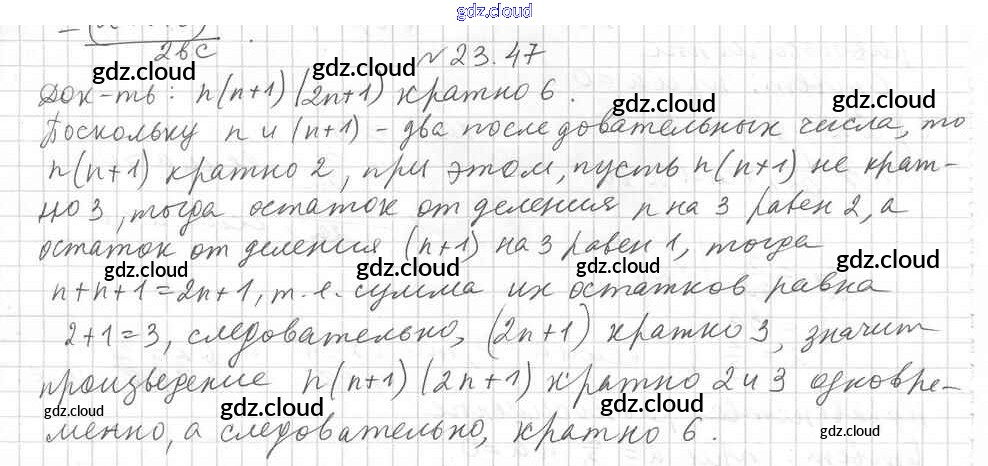 gdz.cloud
2bc
№ 23.47
gdz.cloud gdz.cloud
Док-ть: n(n+1)(2n+1) кратно 6.
gdz.cloud gdz.cloud
Поскольку n и (n+1) - два последовательных числа, то
n(n+1) кратно 2, при этом, пусть n(n+1) не крат-
gdz.cloud gdz.cloud gdz.cloud
но 3, тогда остаток от деления n на 3 равен 2, а
остаток от деления (n+1) на 3 равен 1, тогда
gdz.cloud gdz.cloud gdz.cloud
n+n+1=2n+1, т.е. сумма их остатков равна
2+1=3, следовательно, (2n+1) кратно 3, значит
gdz.cloud gdz.cloud gdz.cloud
произведение n(n+1)(2n+1) кратно 2 и 3 одновре-
gdz.cloud gdz.cloud gdz.cloud
менно, а следовательно, кратно 6.
gdz.cloud